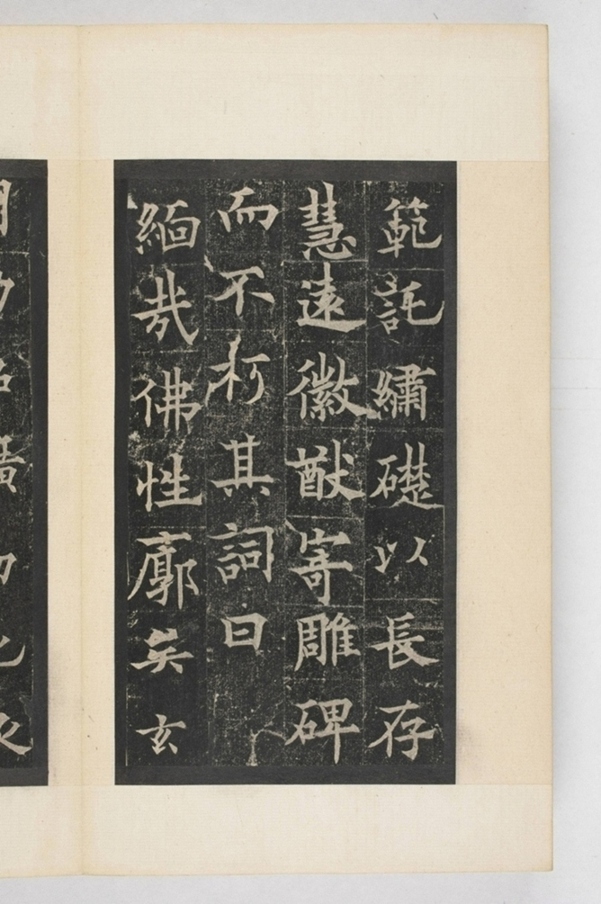 範託繡礎以長存
慧遠徽猷寄雕碑
而不朽其詞曰
緬哉佛性廓矣玄